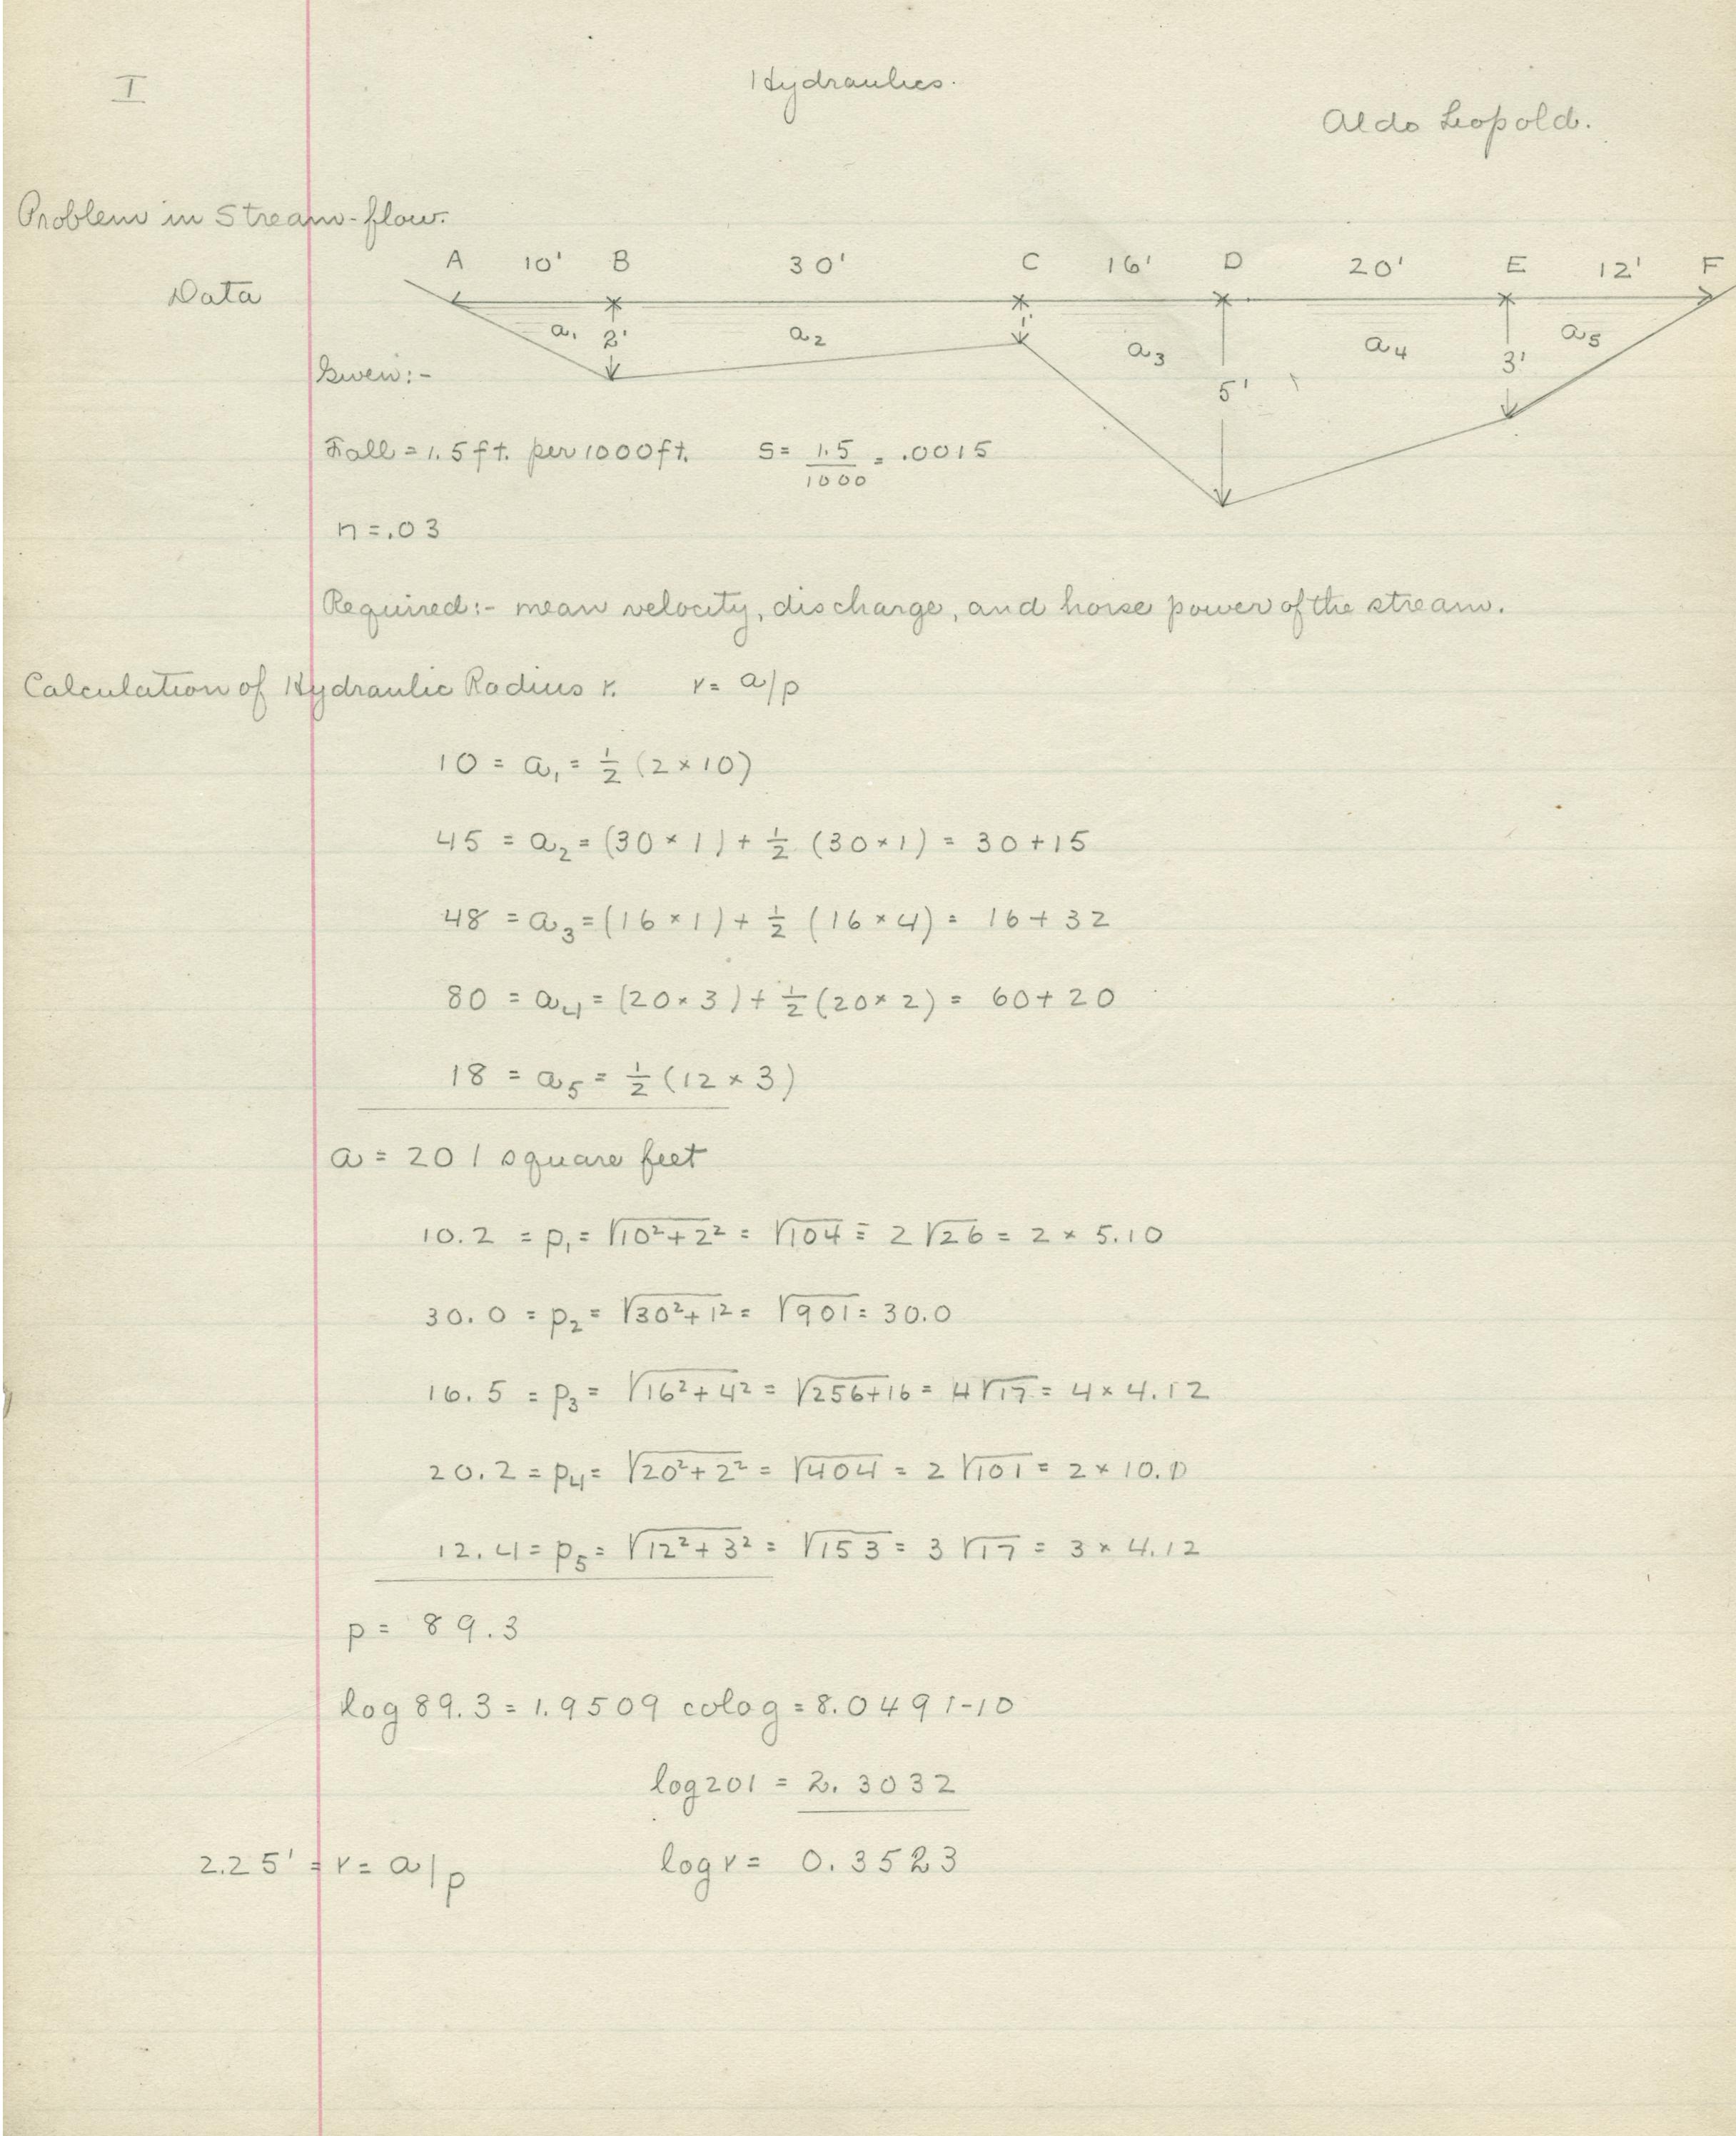 I
Hydraulics.
Aldo Leopold.
Problem in Stream-flow.
A 10' B 30' C 16' D 20' E 12' F
Data
a₁ 2' a₂ 1' a₃ 5' a₄ 3' a₅
Given:-
Fall = 1.5 ft. per 1000 ft. S = 1.5/1000 = .0015
n = .03
Required:- mean velocity, discharge, and horse power of the stream.
Calculation of Hydraulic Radius r. r = a/p
10 = a₁ = ½ (2 × 10)
45 = a₂ = (30 × 1) + ½ (30 × 1) = 30 + 15
48 = a₃ = (16 × 1) + ½ (16 × 4) = 16 + 32
80 = a₄ = (20 × 3) + ½ (20 × 2) = 60 + 20
18 = a₅ = ½ (12 × 3)
a = 201 square feet
10.2 = p₁ = √10² + 2² = √104 = 2 √26 = 2 × 5.10
30.0 = p₂ = √30² + 1² = √901 = 30.0
16.5 = p₃ = √16² + 4² = √256 + 16 = 4 √17 = 4 × 4.12
20.2 = p₄ = √20² + 2² = √404 = 2 √101 = 2 × 10.1
12.4 = p₅ = √12² + 3² = √153 = 3 √17 = 3 × 4.12
p = 89.3
log 89.3 = 1.9509 colog = 8.0491-10
log 201 = 2.3032
2.25' = r = a/p log r = 0.3523